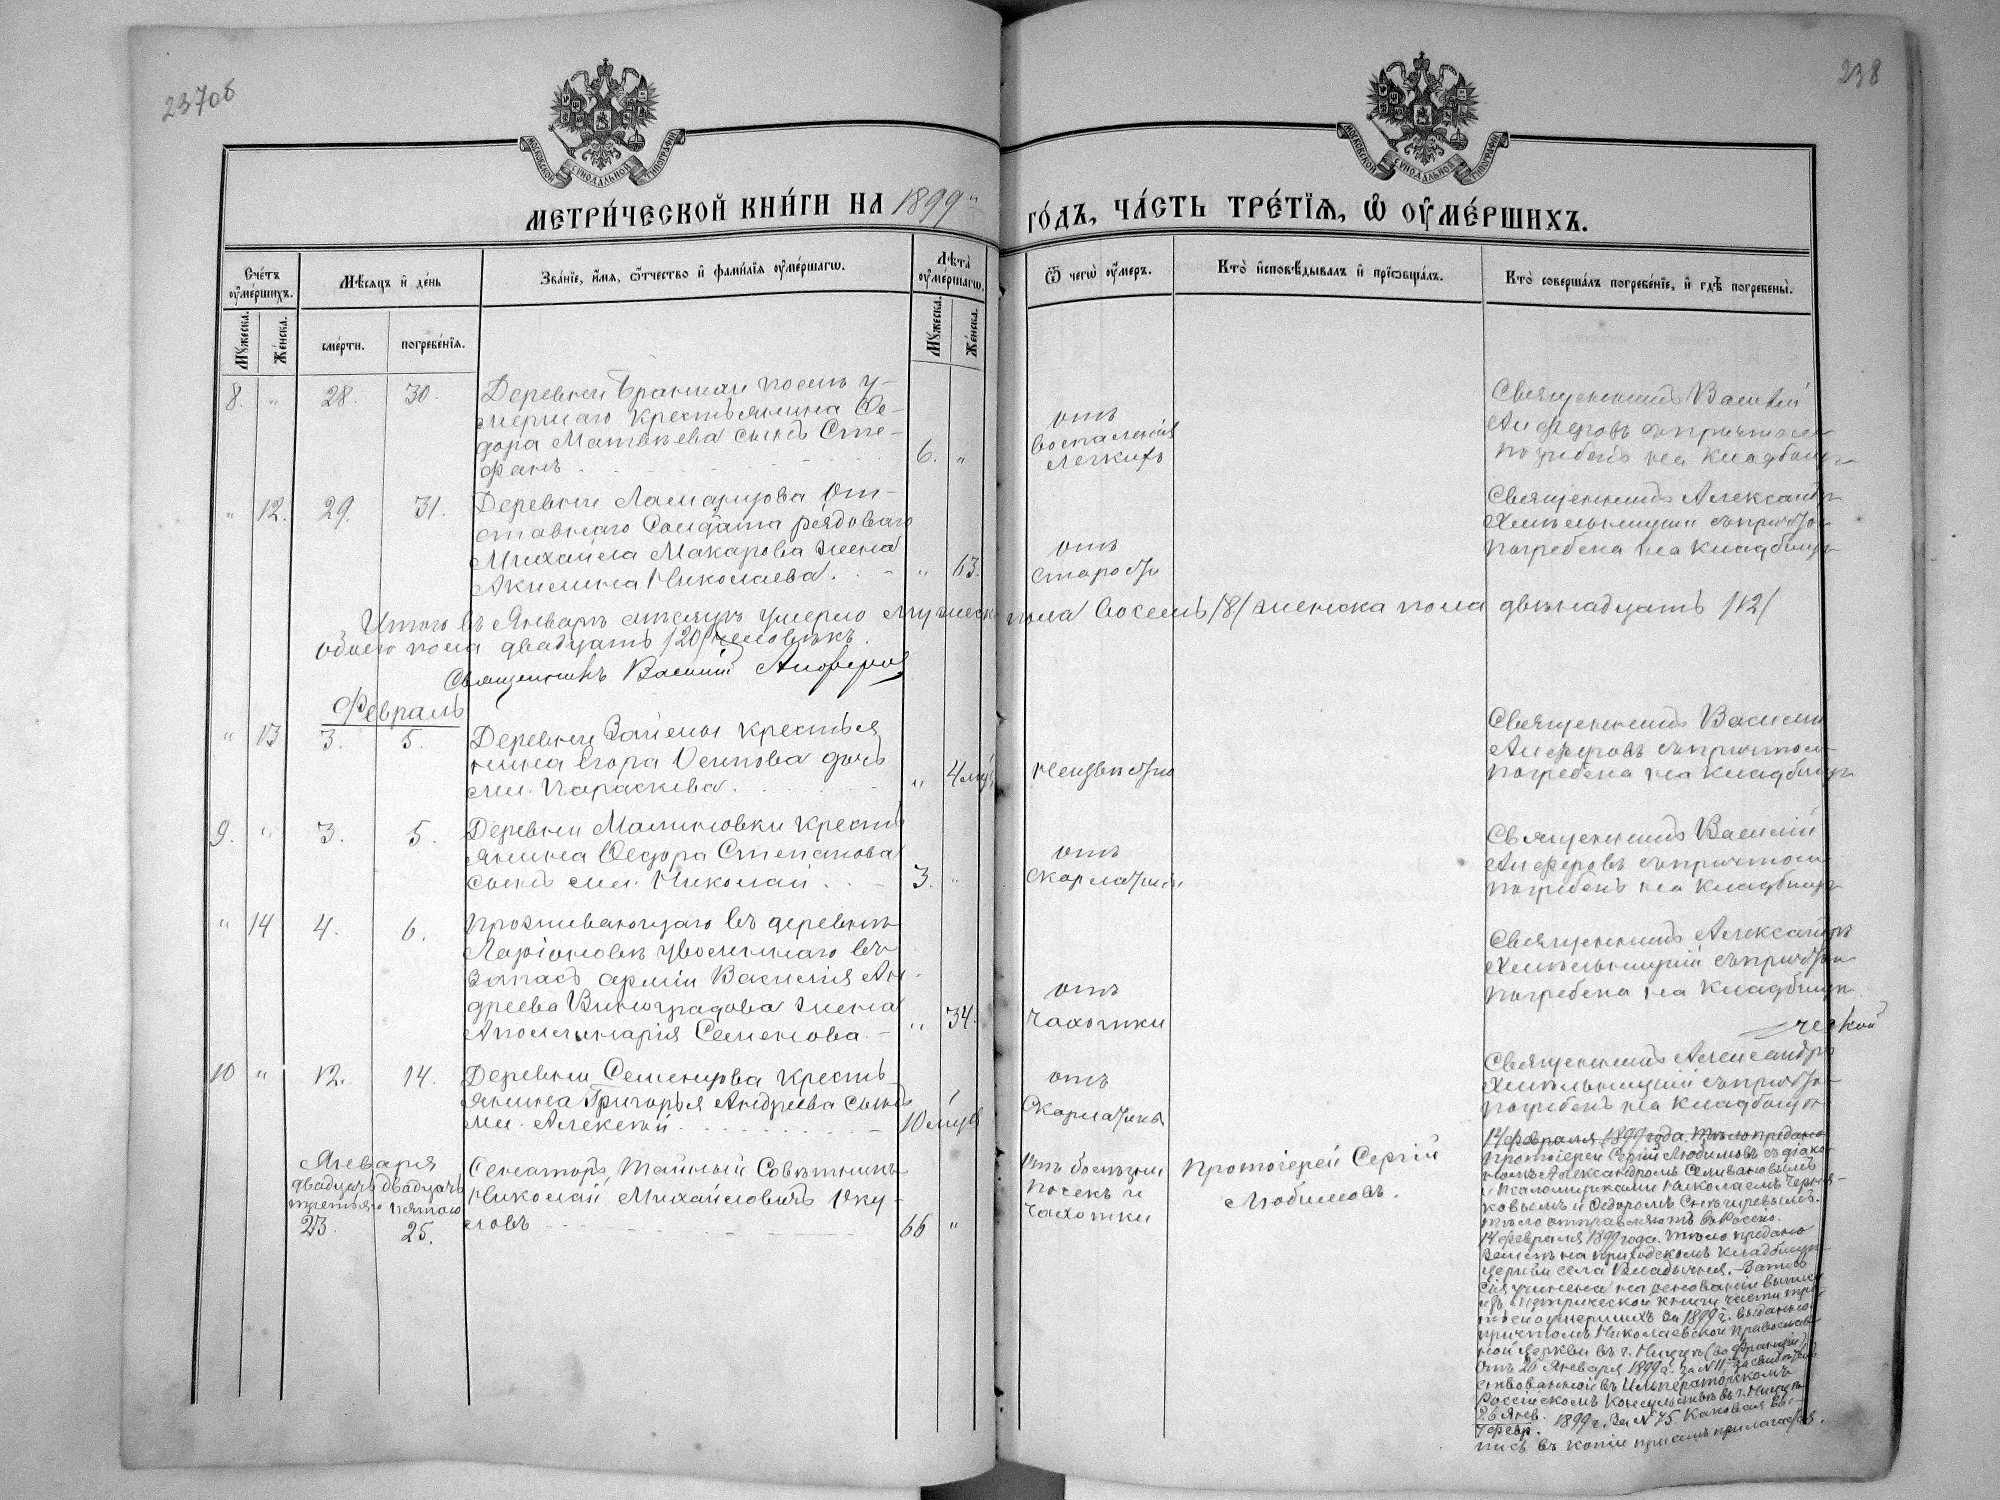 237об
238
МОСКОВСКОЙ СѴНОДАЛЬНОЙ ТИПОГРАФІИ
МОСКОВСКОЙ СѴНОДАЛЬНОЙ ТИПОГРАФІИ
МЕТРИ́ЧЕСКОЙ КНИ́ГИ НА 1899 ГО́ДЪ, ЧА́СТЬ ТРЕ́ТЇѦ, Ѽ ОУ҆МЕ́РШИХЪ.
Сче́тъ оу҆ме́ршихъ.
Мѣ́сѧцъ и҆ де́нь
Зва́нїе, и҆́мѧ, ѻ҆́тчество и҆ фами́лїѧ оу҆ме́ршагѡ.
Лѣта̀ оу҆ме́ршагѡ.
Ѿ чегѡ̀ оу҆́меръ.
Кто̀ и҆сповѣ́дывалъ и҆ прїѡбща́лъ.
Кто̀ соверша́лъ погребе́нїе, и҆ гдѣ̀ погребены̀.
Мꙋ́жеска.
Же́нска.
сме́рти.
погребе́нїѧ.
Мꙋ́жеска.
Же́нска.
8. " 28. 30.
Деревни послѣ у-
мершаго крестьянина Ѳе-
дора Матвѣева сынъ Сте-
фанъ
6. "
отъ
воспаленія
легкихъ
Священникъ Василій
Анферовъ съ причтомъ
погребенъ на кладбищѣ
" 12. 29. 31.
Деревни От-
ставнаго Солдата рядоваго
Михаила Макарова жена
Акилина Николаева.
" 63.
отъ
старости
Священникъ Александръ
Хмѣльницкій съ причтом
погребена на кладбищѣ
Итого въ Январѣ мѣсяцѣ умерло мужеска пола восемь /8/ женска пола двѣнадцать /12/
обоего пола двадцать /20/ человѣкъ.
Священникъ Василій Анферовъ
Февраль
" 13 3. 5.
Деревни крестья
нина Егора Осипова дочь
мл. Параскева.
" 4 мѣс
Неизвѣстно
Священникъ Василій
Анферовъ съ причтом
погребена на кладбищѣ
9. " 3. 5.
Деревни Малиновки крестья
янина Ѳедора Степанова
сынъ мл. Николай.
3. "
отъ
скарлатины
Священникъ Василій
Анферовъ съ причтом
погребенъ на кладбищѣ
" 14 4. 6.
Проживающаго въ деревнѣ
Ларіоновкѣ уволеннаго въ
запасъ арміи Василія Ан-
дреева Виноградова жена
Аполлинарія Семенова.
" 34.
отъ
чахотки
Священникъ Александръ
Хмѣльницкій съ причтом
погребена на кладбищѣ
10 " 12. 14.
Деревни Семенцова кресть-
янина Григорья Андреева сынъ
мл. Алексѣй
10 мѣсяц
отъ
Скарлатины
Священникъ Александръ
Хмѣльницкій съ причтом
погребенъ на кладбищѣ
Января
двадцать двадцать
третьяго пятаго
23 25.
Сенаторъ, Тайный Совѣтникъ
Николай Михайловичъ Оку-
ловъ
66 "
Отъ болѣзни
почекъ и
чахотки
Протоіерей Сергій
Любимовъ.
14 февраля 1899 года тѣло предано
Протоіерей Сергій Любимовъ съ діако-
номъ Александромъ Селивановымъ
и псаломщиками Николаемъ Черня-
ковымъ и Ѳедоромъ Снѣгиревымъ.
Тѣло отправляютъ въ Россію.
14 февраля 1899 года тѣло предано
землѣ на приходскомъ кладбищѣ
церкви села Владычня. Запись
сія учинена на основаніи выписи
изъ метрической книги части тре-
тьей о умершихъ за 1899 г. выданной
причтомъ Николаевской Православ-
ной церкви въ г. Ниццѣ (во Франціи)
отъ 26 Января 1899 г. за № 11 засвидѣтель-
ствованной въ Императорскомъ
Россійскомъ Консульствѣ въ г. Ниццѣ
26 Янв.
7 февр. 1899 г. за № 75. Каковая вы-
пись въ копіи при семъ прилагается.